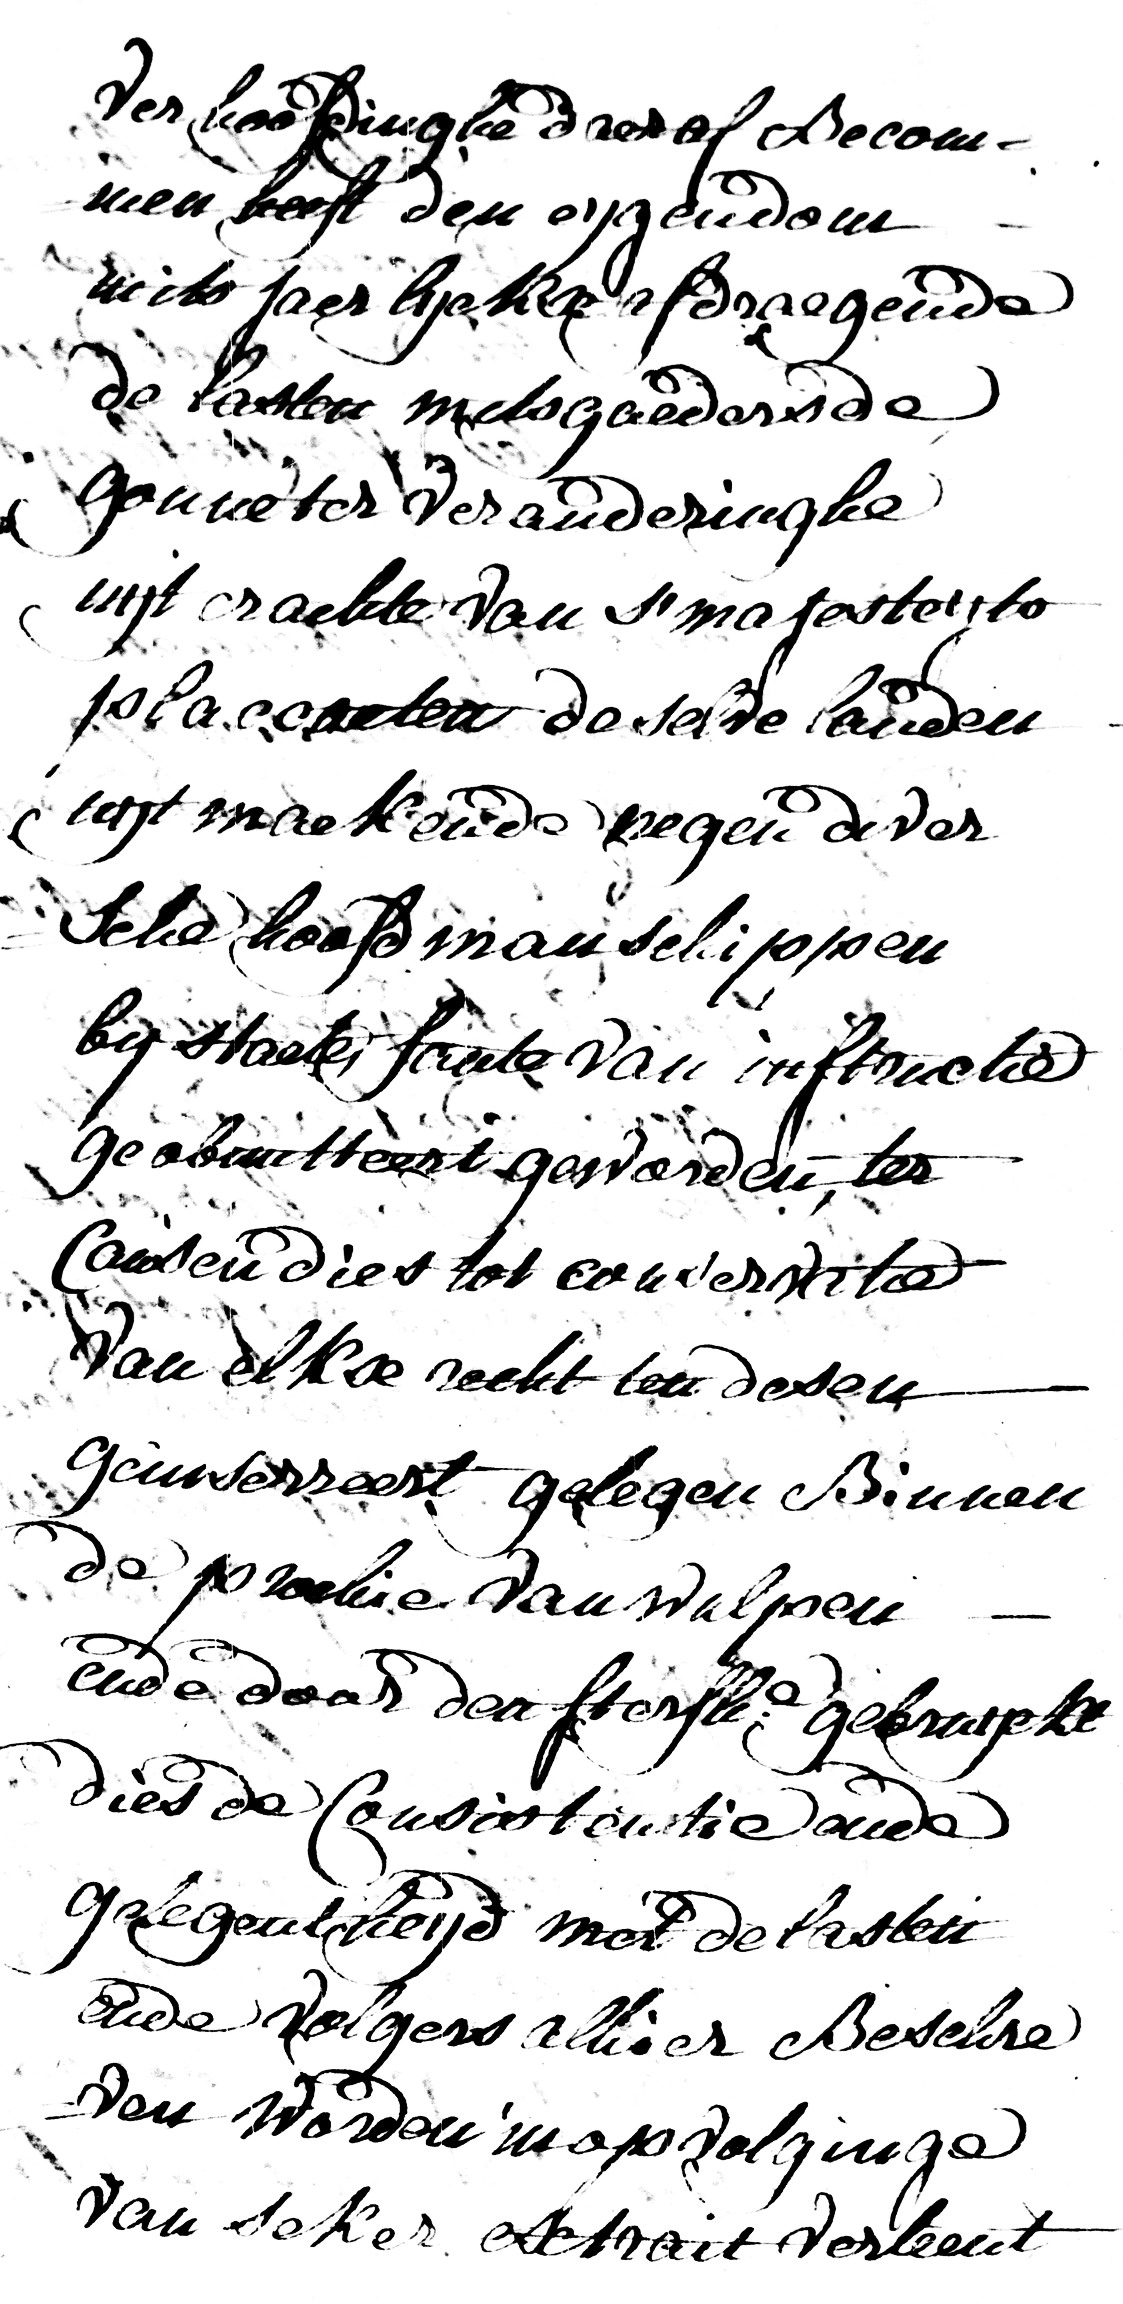 Verhoofdinghe daer af Becom-
men heeft den eygendom
mits jaerlycke afdraegende
de lasten mitsgaeders de
gonne ter Veranderinghe
uijt crachte van s'majesteyts
placcaeten de selve landen
uijt maekende negen diver
sche hoofdmanschippen
by staete faute van instructie
geobmitteert geworden, ter
causen dies tot conservatie
van elkx recht ten desen
geinsereert gelegen Binnen
de prochie van wulpen
ende door den sterfh:e gebruyckt
dies de Consistentie ende
gelegentheyd met de lasten
ende volgers alhier Beschre
ven worden in opvolginge
van seker extrait verleent